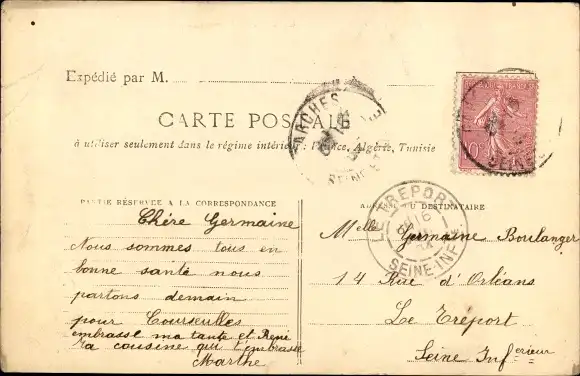 Expédié par M.
CARTE POSTALE
à utiliser seulement dans le régime intérieur : France, Algérie, Tunisie
PARTIE RÉSERVÉE A LA CORRESPONDANCE
Chére Germaine
Nous sommes tous en
bonne santé nous
partons demain
pour Courseulles
embrasse ma tante et René
ta cousine qui t'embrasse
Marthe
ADRESSE DU DESTINATAIRE
Melle Germaine Boulanger
14 Rue d'Orléans
Le Tréport
Seine Inférieur
LE TREPORT
SEINE-INFRE
GARCHES
SEINE
10
SEINE